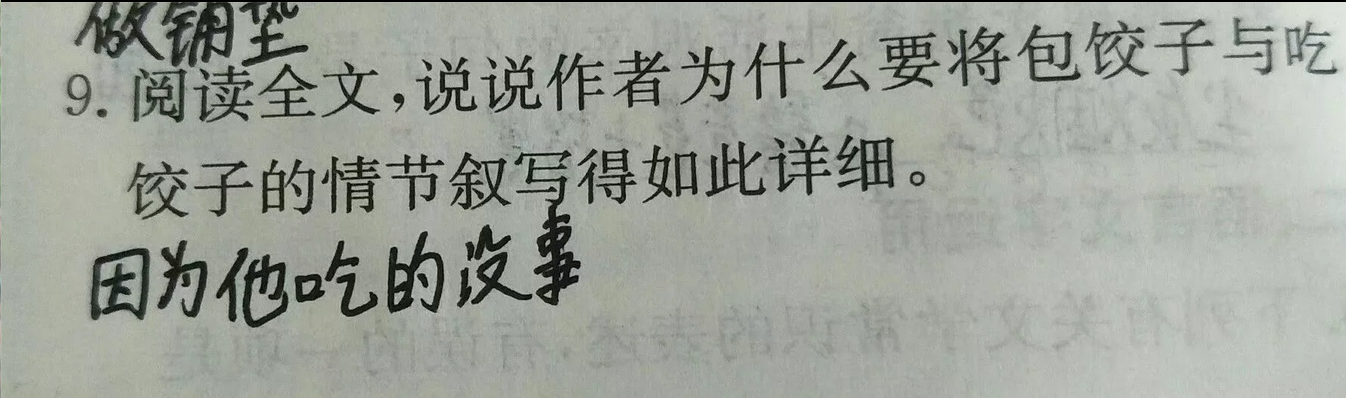 做铺垫
9. 阅读全文,说说作者为什么要将包饺子与吃
饺子的情节叙写得如此详细。
因为他吃的没事